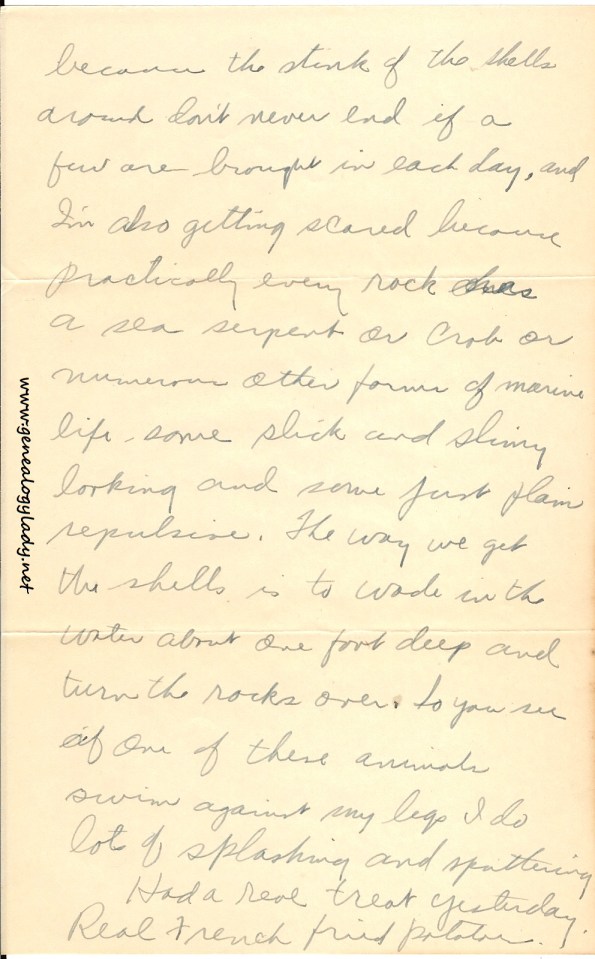 because the stink of the shells
around don't never end if a
few are brought in each day, and
I'm also getting scared because
practically every rock has
a sea serpent or crab or
numerous other forms of marine
life - some slick and slimy
looking and some just plain
repulsive. The way we get
the shells is to wade in the
water about one foot deep and
turn the rocks over. So you see
if one of these animals
swim against my legs I do
lot of splashing and sputtering
Had a real treat yesterday.
Real French fried potatoes.
www.genealogylady.net